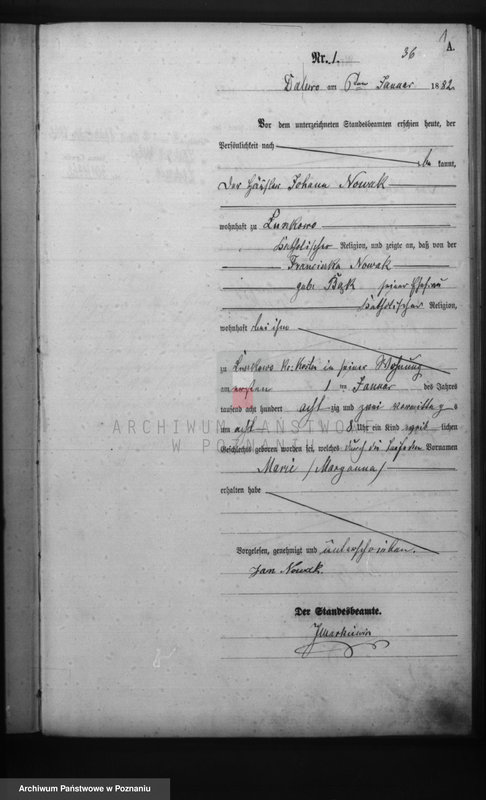 36
1
A.
Nr. 1.
am 6ten Januar 1882
Vor dem unterzeichneten Standesbeamten erschien heute, der
Persönlichkeit nach
be kannt,
Der Häusler Johann Nowak
wohnhaft zu Lunkowo
katholischer Religion, und zeigte an, daß von der
Franciska Nowak
geb. Bąk seiner Ehefrau
katholischer Religion,
wohnhaft bei ihm
zu Lunkowo in seiner Wohnung
am ersten 1 ten Januar des Jahres
tausend acht hundert acht zig und zwei vormittag s
um acht 8 Uhr ein Kind weib lichen
Geschlechts geboren worden sei, welches durch die Taufe den Vornamen
Marie (Maryanna)
erhalten habe
Vorgelesen, genehmigt und unterschrieben.
Jan Nowak.
Der Standesbeamte.
ARCHIWUM PAŃSTWOWE
W POZNANIU
Archiwum Państwowe w Poznaniu